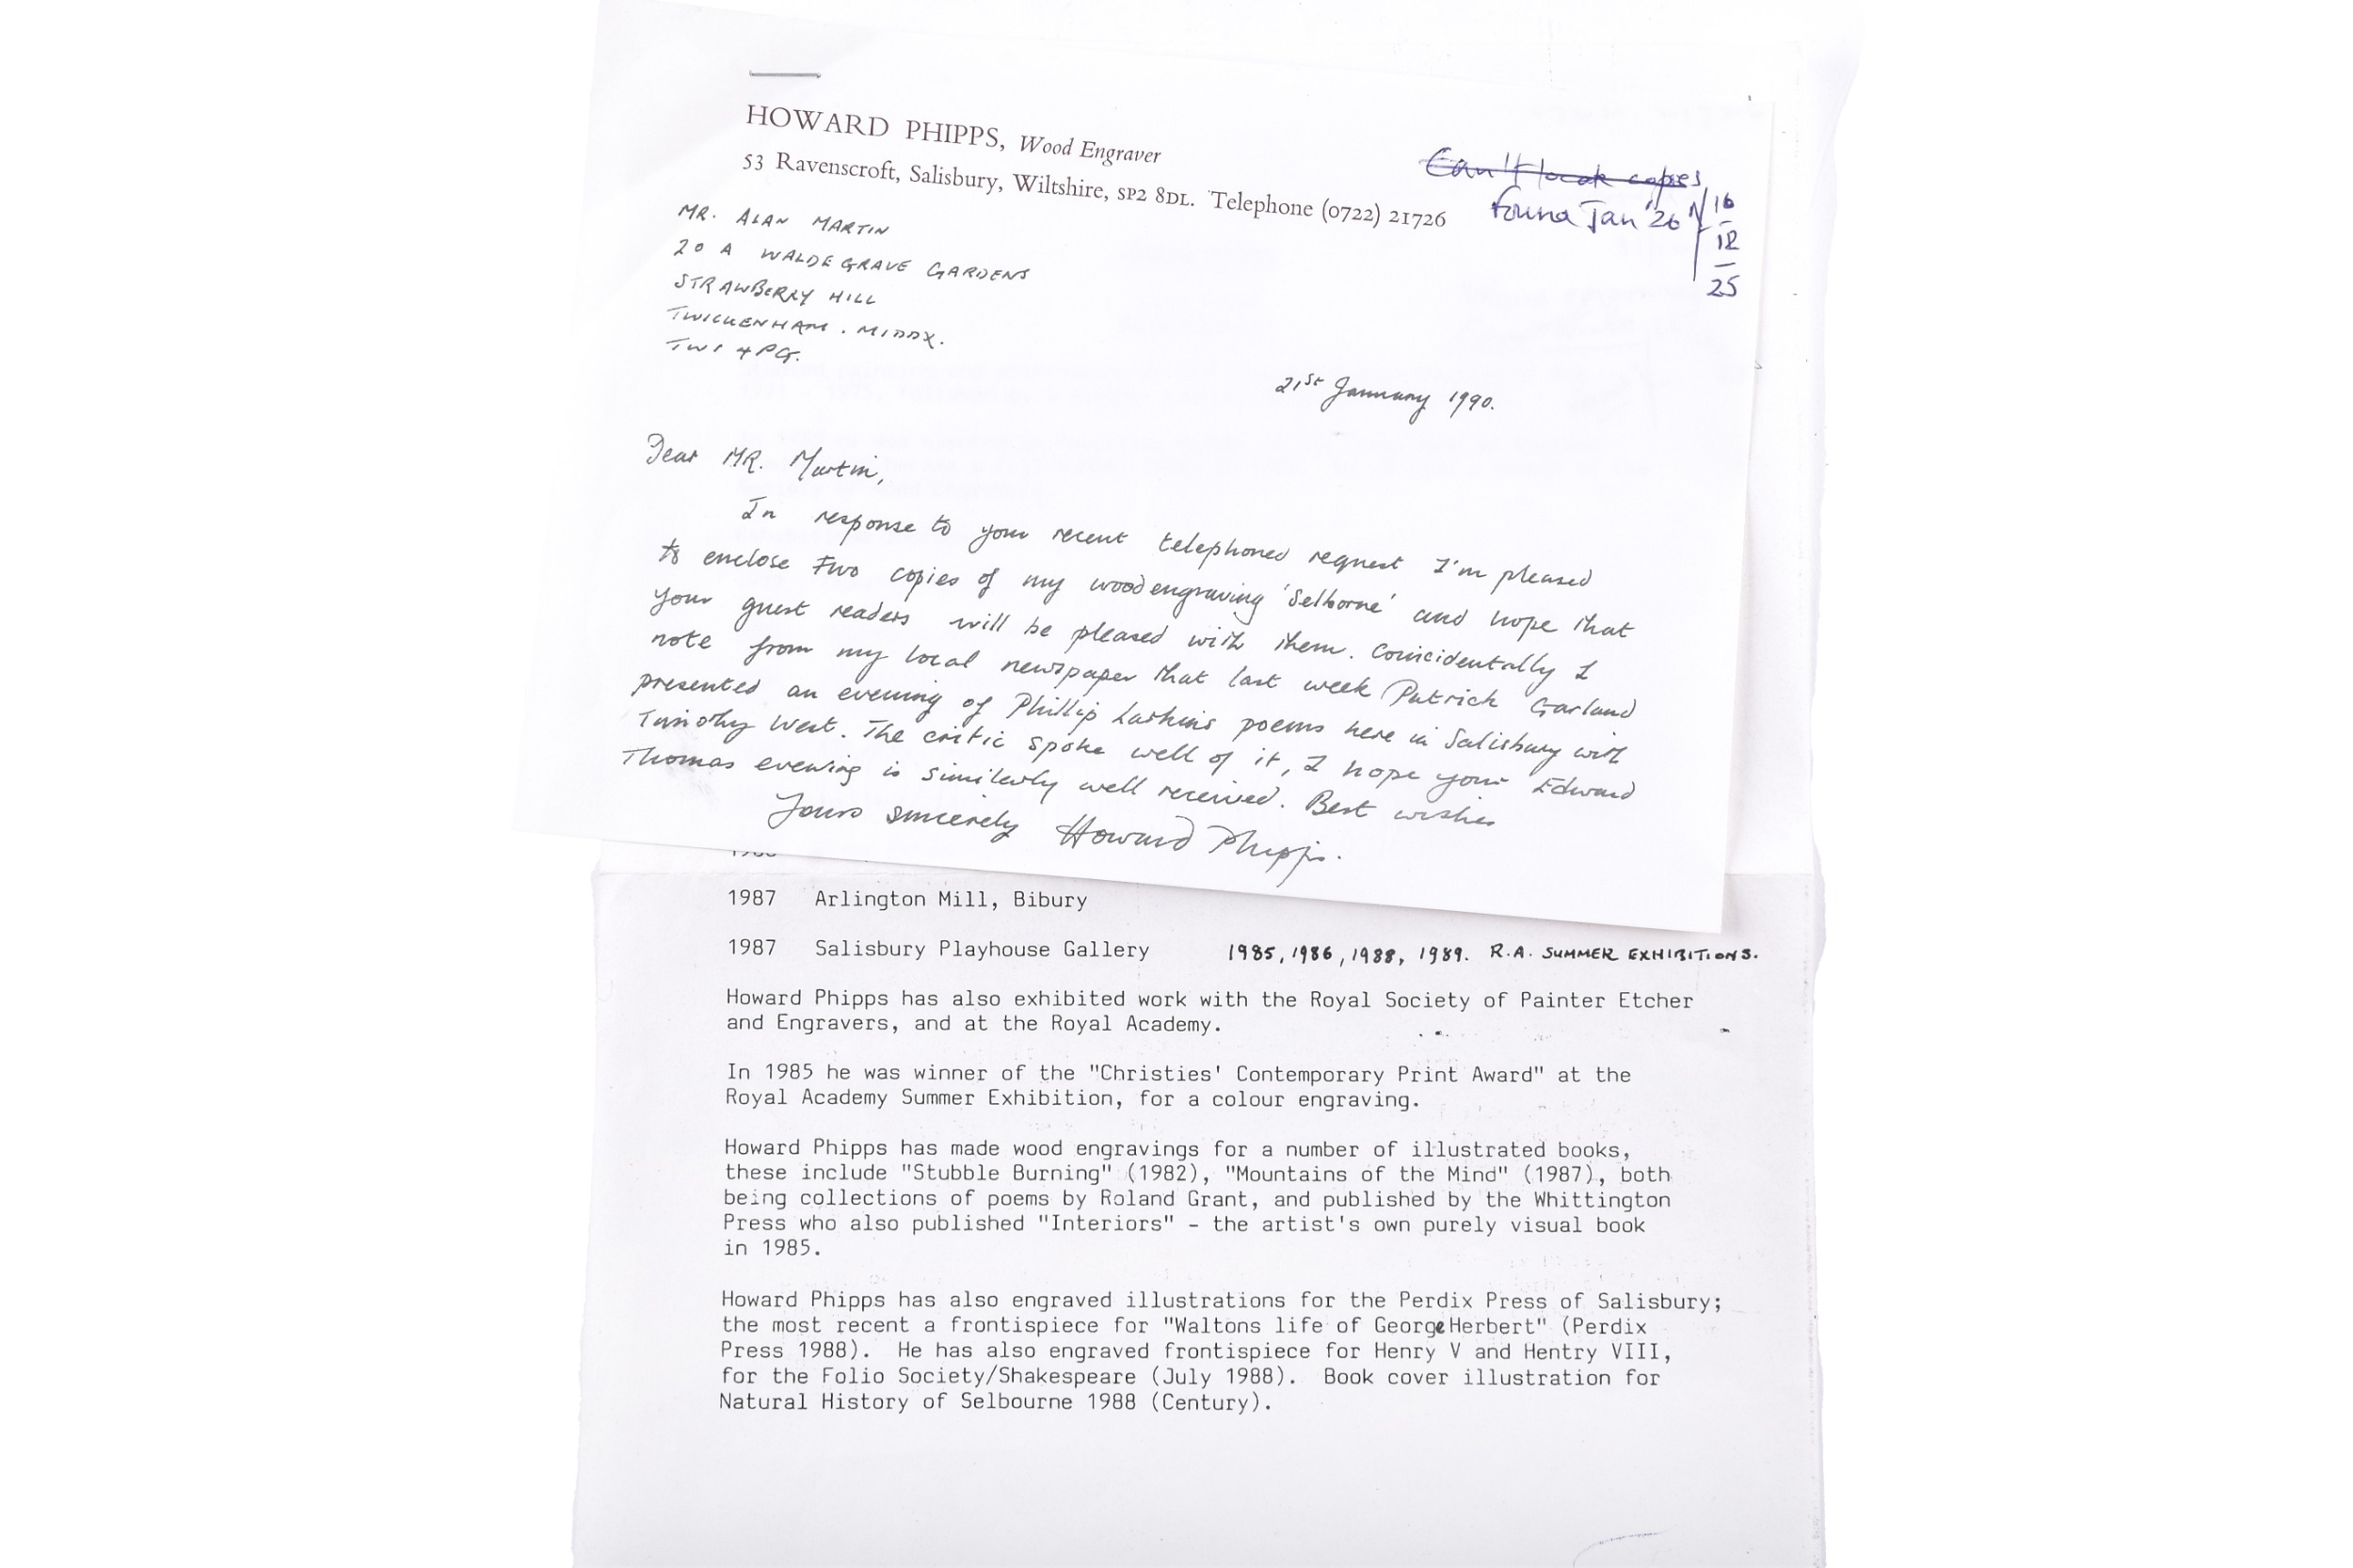 HOWARD PHIPPS, Wood Engraver
53 Ravenscroft, Salisbury, Wiltshire, SP2 8DL. Telephone (0722) 21726
Can't locate copies
found Jan '26
16
12
25
MR. ALAN MARTIN
20 A WALDEGRAVE GARDENS
STRAWBERRY HILL
TWICKENHAM. MIDDX.
TW1 4PG.
21st January 1990.
Dear MR. Martin,
In response to your recent telephoned request I'm pleased
to enclose two copies of my wood engraving 'Selborne' and hope that
your guest readers will be pleased with them. Coincidentally I
note from my local newspaper that last week Patrick Garland
presented an evening of Phillip Larkins poems here in Salisbury with
Timothy West. The critic spoke well of it, I hope your Edward
Thomas evening is similarly well received. Best wishes
Yours sincerely Howard Phipps.
1987 Arlington Mill, Bibury
1987 Salisbury Playhouse Gallery 1985, 1986, 1988, 1989. R.A. SUMMER EXHIBITIONS.
Howard Phipps has also exhibited work with the Royal Society of Painter Etcher
and Engravers, and at the Royal Academy.
In 1985 he was winner of the "Christies' Contemporary Print Award" at the
Royal Academy Summer Exhibition, for a colour engraving.
Howard Phipps has made wood engravings for a number of illustrated books,
these include "Stubble Burning" (1982), "Mountains of the Mind" (1987), both
being collections of poems by Roland Grant, and published by the Whittington
Press who also published "Interiors" - the artist's own purely visual book
in 1985.
Howard Phipps has also engraved illustrations for the Perdix Press of Salisbury;
the most recent a frontispiece for "Waltons life of George Herbert" (Perdix
Press 1988). He has also engraved frontispiece for Henry V and Hentry VIII,
for the Folio Society/Shakespeare (July 1988). Book cover illustration for
Natural History of Selbourne 1988 (Century).